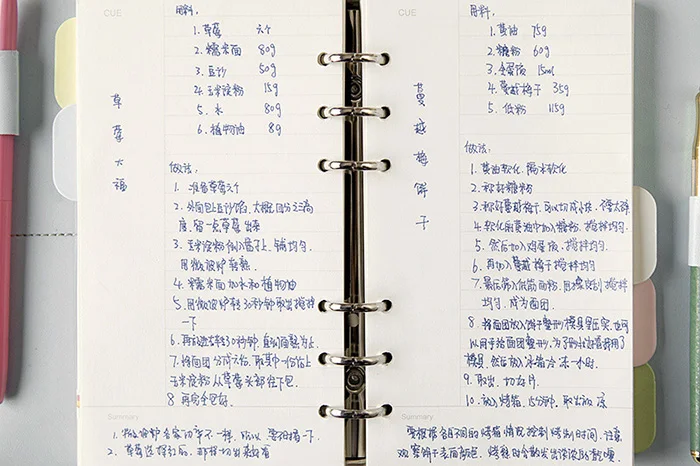 CUE
用料:
1. 草莓 六个
2. 糯米面 80g
3. 豆沙 50g
4. 玉米淀粉 15g
5. 水 80g
6. 植物油 8g
草莓大福
做法:
1. 准备草莓六个
2. 外面包上豆沙馅,大概四分之三高
度,留一点草莓出来
3. 玉米淀粉倒入盘子上,铺均匀.
用微波炉转熟.
4. 糯米面加水和植物油
5. 用微波炉转30秒钟取出搅拌
一下
6. 再放进去转30秒钟,直到面熟为止.
7. 将面团分成六份,取其中一份沾上
玉米淀粉从草莓头部往下包.
8. 再完全包好.
Summary
1. 微波炉各家功率不一样,所以要观察一下.
2. 草莓选择红的,那样切出来好看
CUE
用料:
1. 黄油 75g
2. 糖粉 60g
3. 全蛋液 15ml
4. 蔓越梅干 35g
5. 低粉 115g
蔓越梅饼干
做法:
1. 黄油软化,隔水软化
2. 称好糖粉
3. 称好蔓越梅干,可以切成小块,不要太碎
4. 软化的黄油中加入糖粉,搅拌均匀.
5. 然后加入鸡蛋液,搅拌均匀.
6. 再加入蔓越梅干搅拌均匀.
7. 最后筛入低筋面粉,用橡皮刮搅拌
均匀,成为面团
8. 将面团放入饼干整形模具里压实,也可
以用手给面团整形,为了到位还是用了
模具.然后放入冰箱冷冻一小时.
9. 取出,切片.
10. 放入烤箱,15分钟,取出放凉
Summary
要根据各自不同的烤箱情况控制烤制时间.注意
观察饼干表面颜色,烤箱时会散发出浓浓的黄油香味